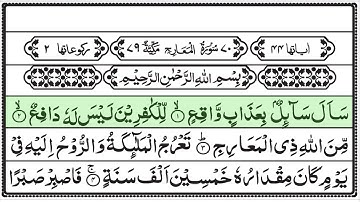 اٰیاتها ۴۴ ۷۰ سُوۡرَةُ الۡمَعَارِجِ مَكِّیَّةٌ ۷۹ ركوعاتها ۲
بِسۡمِ اللّٰهِ الرَّحۡمٰنِ الرَّحِیۡمِ
سَاَلَ سَآىِٕلٌۢ بِعَذَابٍ وَّاقِعٍ ۙ﴿۱﴾ لِّلۡكٰفِرِیۡنَ لَیۡسَ لَهٗ دَافِعٌ ۙ﴿۲﴾
مِّنَ اللّٰهِ ذِی الۡمَعَارِجِ ؕ﴿۳﴾ تَعۡرُجُ الۡمَلٰٓىِٕكَةُ وَ الرُّوۡحُ اِلَیۡهِ فِیۡ
یَوۡمٍ كَانَ مِقۡدَارُهٗ خَمۡسِیۡنَ اَلۡفَ سَنَةٍ ۚ﴿۴﴾ فَاصۡبِرۡ صَبۡرًا